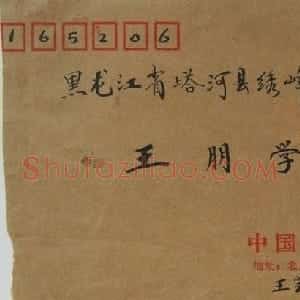 165206
黑龙江省塔河县绣峰
王朋学
Shufaziliao.com
中国
地址：北
王